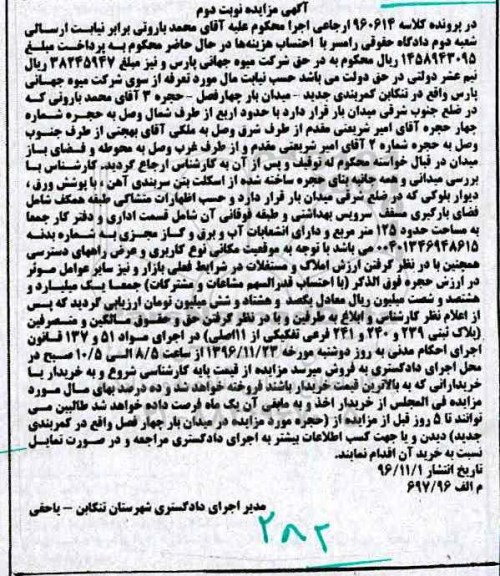 آگهی مزایده نوبت دوم
در پرونده کلاسه ۹۶۰۶۱۴ ارجاعی اجرا محکوم علیه آقای محمد بارونی برابر نیابت ارسالی
شعبه دوم دادگاه حقوقی رامسر با احتساب هزینه‌ها در حال حاضر محکوم به پرداخت مبلغ
۱۴۵۸۹۴۳۰۹۵ ریال محکوم به در حق شرکت میوه جهانی پارس و نیز مبلغ ۳۸۲۴۵۹۴۷ ریال
نیم عشر دولتی در حق دولت می باشد حسب نیابت مال مورد تعرفه از سوی شرکت میوه جهانی
پارس واقع در تنکابن کمربندی جدید - میدان بار چهارفصل - حجره ۳ آقای محمد بارونی که
در ضلع جنوب شرقی میدان بار قرار دارد با حدود اربع از طرف شمال وصل به حجره شماره
چهار حجره آقای امیر شریعتی مقدم از طرف شرق وصل به ملکی آقای بهجتی از طرف جنوب
وصل به حجره شماره ۲ آقای امیر شریعتی مقدم و از طرف غرب وصل به محوطه و فضای باز
میدان در قبال خواسته محکوم له توقیف و پس از آن به کارشناس ارجاع گردید. کارشناس با
بررسی میدانی و همه جانبه بنای حجره ساخته شده از اسکلت بتن سربندی آهن ، با پوشش ورق ،
دیوار بلوکی که در ضلع شرقی میدان بار قرار دارد و حسب اظهارات متشاکی طبقه همکف شامل
فضای بارگیری مسقف ، سرویس بهداشتی و طبقه فوقانی آن شامل قسمت اداری و دفتر کار جمعا
به مساحت حدود ۱۲۵ متر مربع و دارای انشعابات آب و برق و گاز مجزی با شماره بدنه
۰۰۴۰۱۳۴۶۹۴۸۶۱۵ می باشد با توجه به موقعیت مکانی نوع کاربری و عرض راههای دسترسی
همچنین با در نظر گرفتن ارزش املاک و مستغلات در شرایط فعلی بازار و نیز سایر عوامل موثر
در ارزش حجره فوق الذکر (با احتساب قدرالسهم مشاعات و مشترکات) جمعا یک میلیارد و
هشتصد و شصت میلیون ریال معادل یکصد و هشتاد و شش میلیون تومان ارزیابی گردید که پس
از اعلام نظر کارشناس و ابلاغ به طرفین و با در نظر گرفتن حق و حقوق مالکین و متصرفین
(پلاک ثبتی ۲۳۹ و ۲۴۰ و ۲۴۱ فرعی تفکیکی از ۱۱اصلی) در اجرای مواد ۵۱ و ۱۳۷ قانون
اجرای احکام مدنی به روز دوشنبه مورخه ۱۳۹۶/۱۱/۲۳ از ساعت ۸/۵ الی ۱۰/۵ صبح در
محل اجرای دادگستری به فروش میرسد مزایده از قیمت پایه کارشناسی شروع و به خریدار یا
خریدارانی که به بالاترین قیمت خریدار باشند فروخته خواهد شد و ده درصد بهای مال مورد
مزایده فی المجلس از خریدار اخذ و به مابقی آن یک ماه فرصت داده خواهد شد طالبین می
توانند تا ۵ روز قبل از مزایده از (حجره مورد مزایده در میدان بار چهار فصل واقع در کمربندی
جدید) دیدن و یا جهت کسب اطلاعات بیشتر به اجرای دادگستری مراجعه و در صورت تمایل
نسبت به خرید آن اقدام نمایند.
تاریخ انتشار ۹۶/۱۱/۱
م الف ۶۹۷/۹۶
مدیر اجرای دادگستری شهرستان تنکابن - یاحقی
۲۸۲